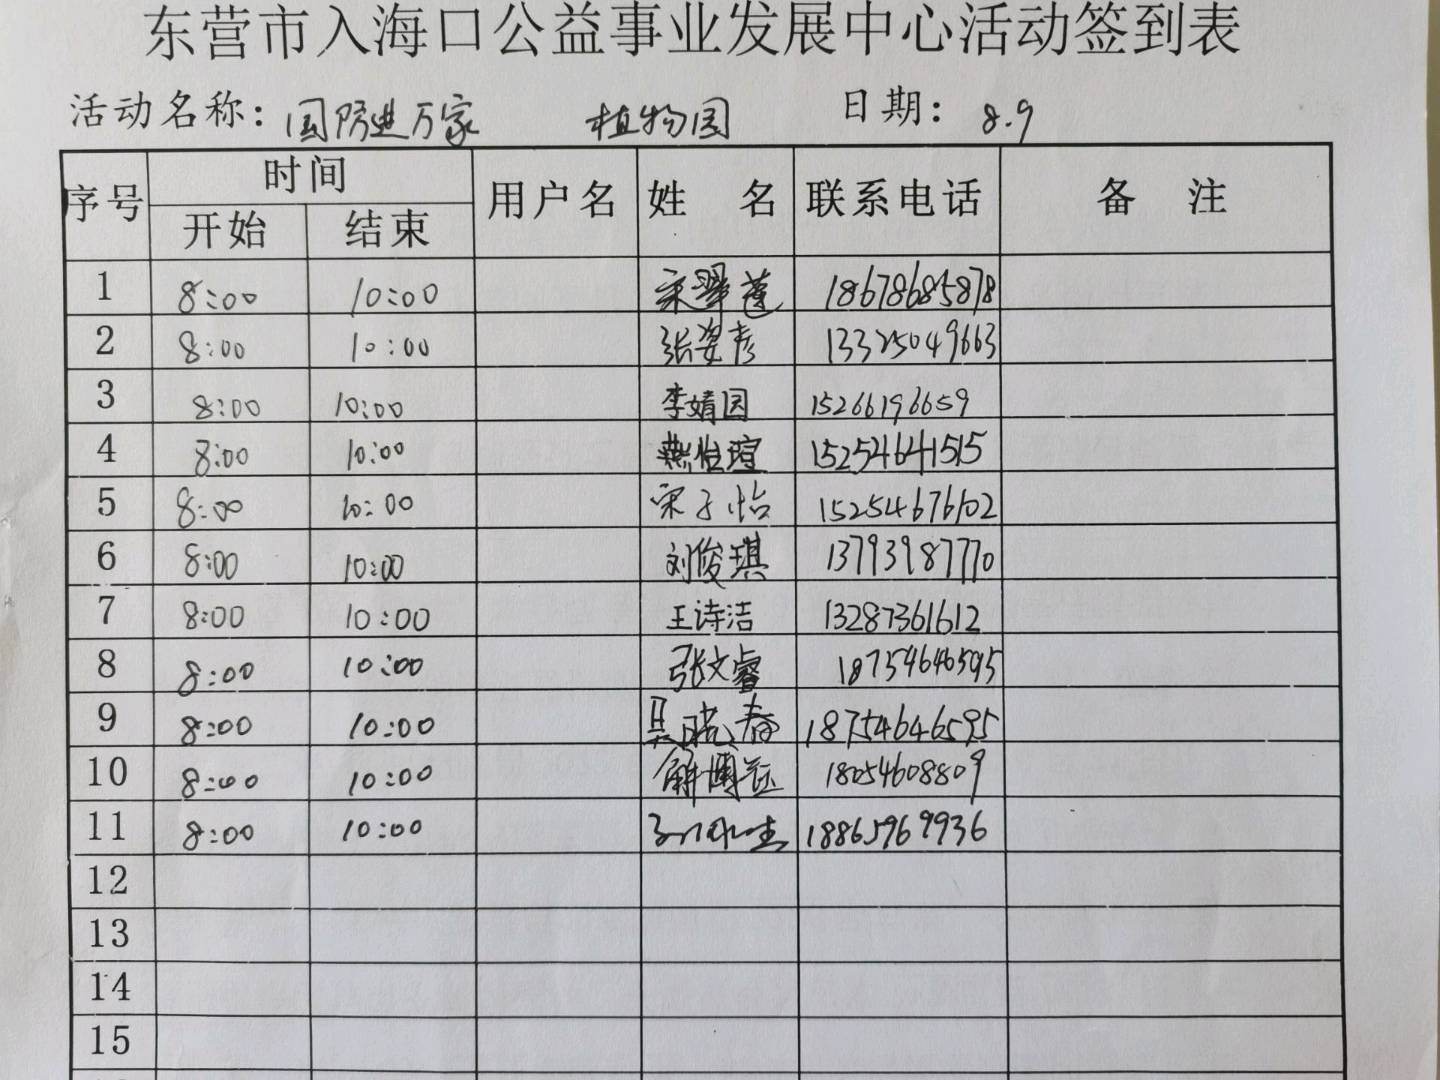 东营市入海口公益事业发展中心活动签到表
活动名称：国防进万家 植物园 日期：8.9
序号 时间 用户名 姓 名 联系电话 备 注
开始 结束
1 8:00 10:00 宋翠莲 18678685878
2 8:00 10:00 张姿彦 13325049663
3 8:00 10:00 李婧园 15266196659
4 8:00 10:00 燕怡瑄 15254641515
5 8:00 10:00 宋子怡 15254676102
6 8:00 10:00 刘俊琪 13793987770
7 8:00 10:00 王诗洁 13287361612
8 8:00 10:00 张文睿 18754646595
9 8:00 10:00 吴晓春 18754646595
10 8:00 10:00 解博 18054608809
11 8:00 10:00 18865969936
12
13
14
15